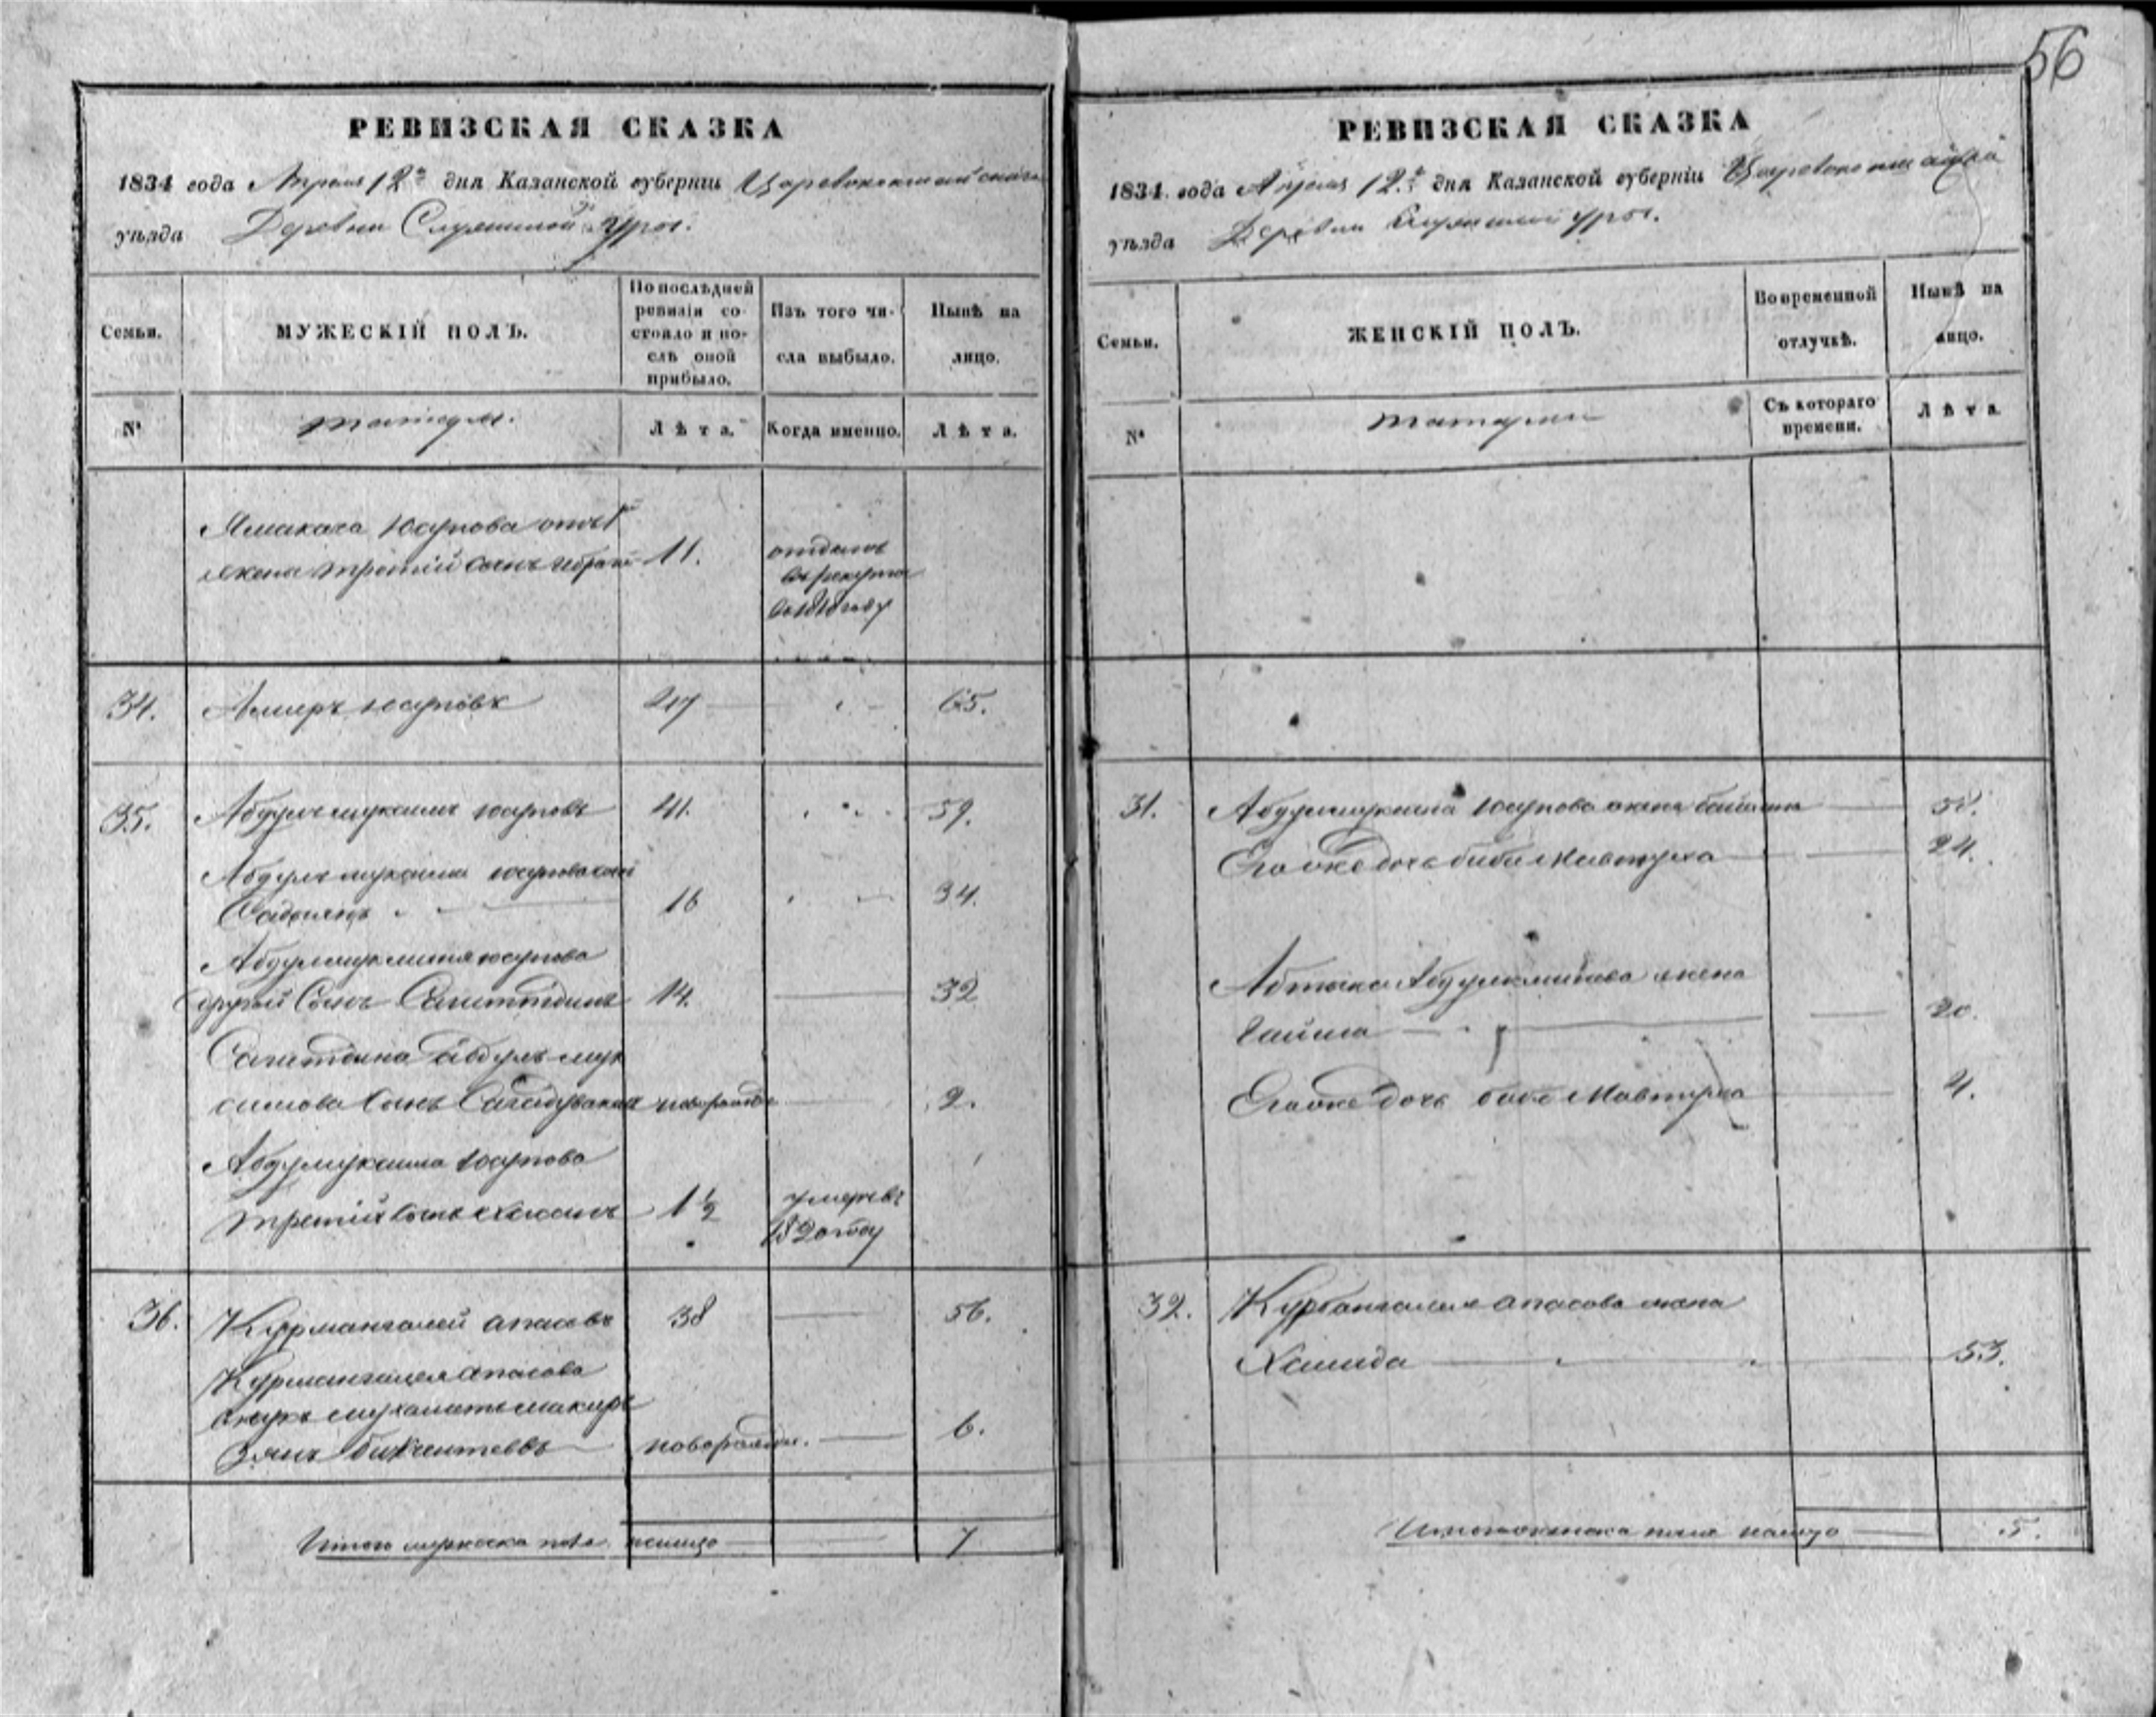 56
РЕВИЗСКАЯ СКАЗКА
1834 года Апреля 12го дня Казанской губерніи Царевококшайскаго
уѣзда Деревни Служилой Уры.
Семьи.
МУЖЕСКІЙ ПОЛЪ.
По послѣдней ревизіи состояло и послѣ оной прибыло.
Изъ того числа выбыло.
Нынѣ на лицо.
№
татары.
Лѣта.
Когда именно.
Лѣта.
Ямакача Юсупова отъ 1й
жены третій сынъ Ибраги 11. отданъ
въ рекруты
34. Амиръ Юсуповъ 47 65.
35. Абдулъ мукминъ Юсуповъ 41. 59.
Абдулъ мукмина Юсупова сынъ
16 34.
Абдулмукмина Юсупова
другой Сынъ Сагитдинъ 14. 32
Сагитдина Габдулъ мук
минова Сынъ новорожде 2.
Абдулмукмина Юсупова
третій сынъ Хасанъ 1½ умеръ въ
1820 году
36. Курмангалей Апасовъ 38 56.
Курмангалея Апасова
внукъ мухаметъ шакиръ
Зянъ новорожден. 6.
Итого мужеска пола налицо 7
РЕВИЗСКАЯ СКАЗКА
1834 года Апреля 12го дня Казанской губерніи Царевококшайска
уѣзда Деревни Служилой Уры.
Семьи.
ЖЕНСКІЙ ПОЛЪ.
Во временной отлучкѣ.
Нынѣ на лицо.
№
татарки
Съ котораго времени.
Лѣта.
31. Абдулмукмина Юсупова жена 58.
Его же дочь биби Мавтуха 24.
Абдулмукминова жена
Гайша 20.
Его же дочь биби Мавтуха 4.
32. Курбангалея Апасова жена
Хамида 53.
Итого женска пола налицо 5.